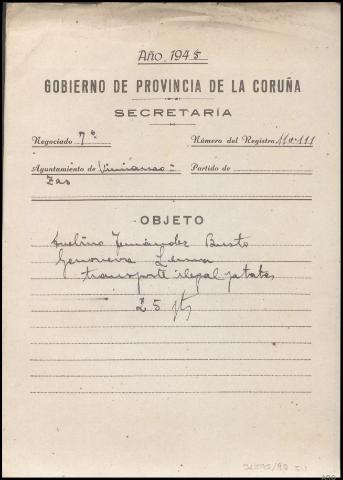 Año, 1945
GOBIERNO DE PROVINCIA DE LA CORUÑA
SECRETARÍA
Negociado 7º Número del Registro 110-111
Ayuntamiento de Vimianzo- Partido de
Zas
OBJETO
Avelino Fernández Busto
Genoveva Lema
transporte ilegal patatas
25 pts